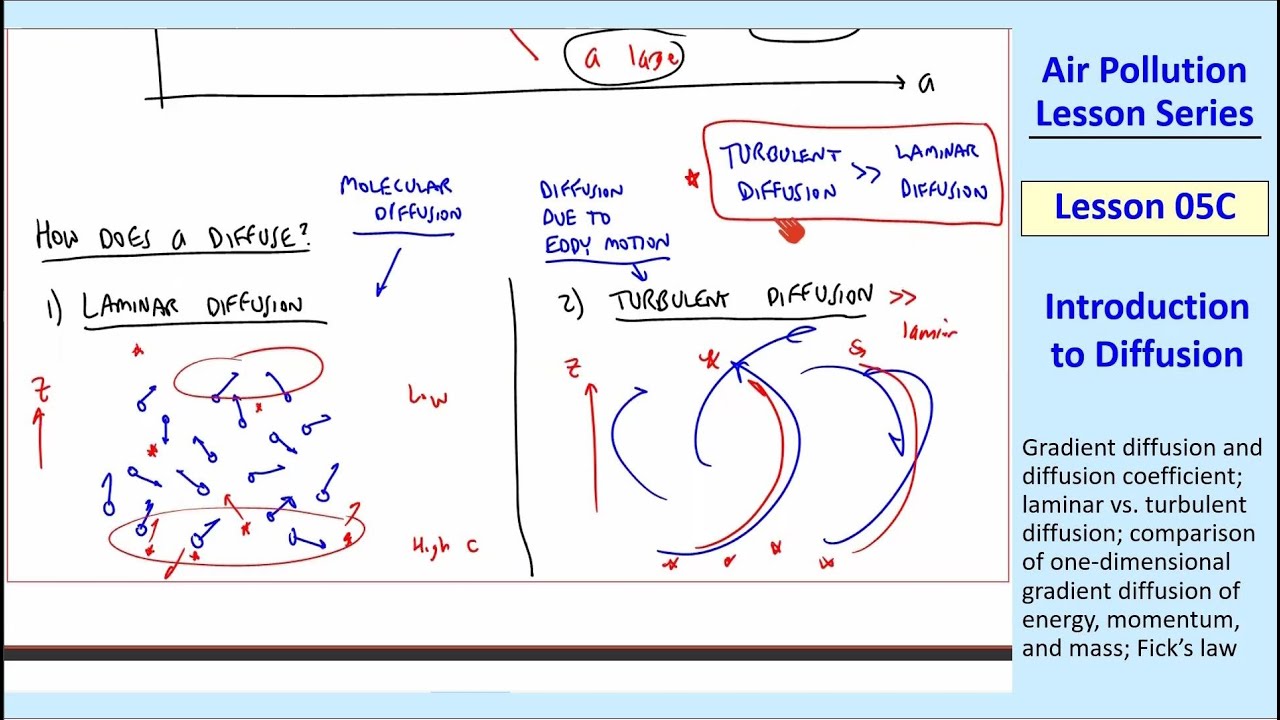 a large
a
MOLECULAR
DIFFUSION
DIFFUSION
DUE TO
EDDY MOTION
TURBULENT
DIFFUSION
>>
LAMINAR
DIFFUSION
HOW DOES a DIFFUSE?
1) LAMINAR DIFFUSION
2) TURBULENT DIFFUSION >>
laminar
Z
Low
High C
Z
Air Pollution
Lesson Series
Lesson 05C
Introduction
to Diffusion
Gradient diffusion and
diffusion coefficient;
laminar vs. turbulent
diffusion; comparison
of one-dimensional
gradient diffusion of
energy, momentum,
and mass; Fick’s law